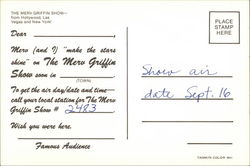 THE MERV GRIFFIN SHOW—
from Hollywood, Las
Vegas and New York!
PLACE
STAMP
HERE
Dear
Merv (and I) "make the stars
shine" on The Merv Griffin
Show soon in
(TOWN)
To get the air day/date and time—
call your local station for The Merv
Griffin Show # 2483
Wish you were here.
Famous Audience
Show air
date Sept. 16